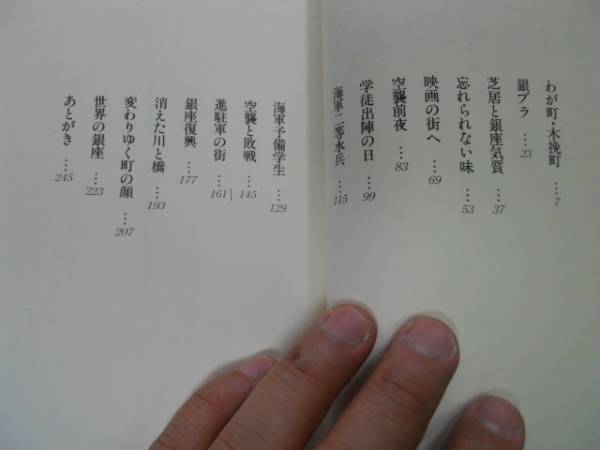 わが町・木挽町 …7
銀ブラ …23
芝居と銀座気質 …37
忘れられない味 …53
映画の街へ …69
空襲前夜 …83
学徒出陣の日 …99
海軍二等水兵 …115
海軍予備学生 …129
空襲と敗戦 …145
進駐軍の街 …161
銀座復興 …177
消えた川と橋 …193
変わりゆく町の顔 …207
世界の銀座 …223
あとがき …245